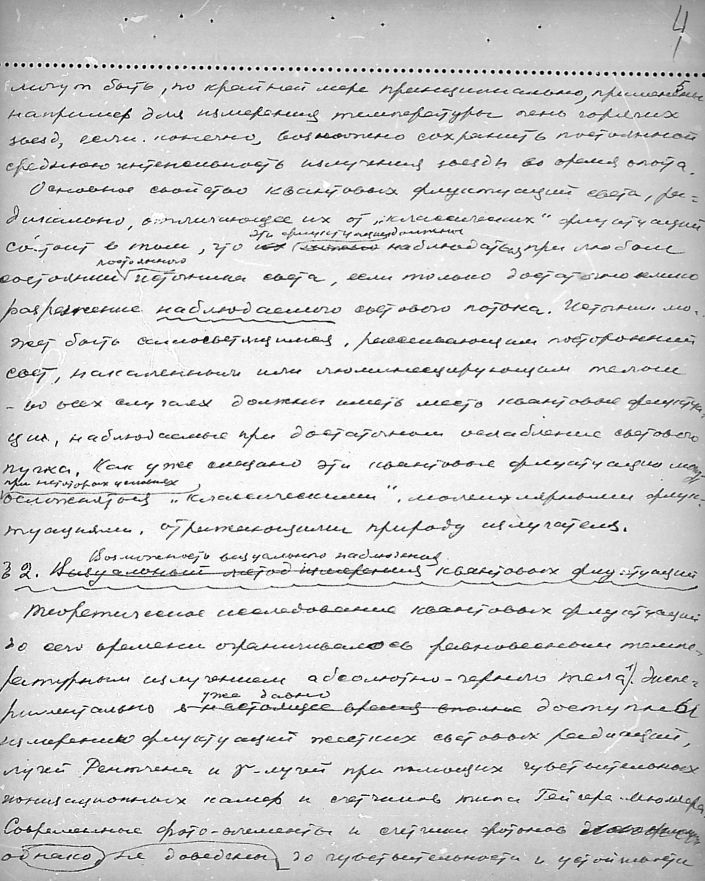 4
могут быть, по крайней мере принципиально, применены
например для измерения температуры очень горячих
звезд, если конечно, возможно сохранить постоянной
среднюю интенсивность излучения звезды во время опыта.
Основное свойство квантовых флуктуаций света, ра-
дикально, отличающее их от „классических“ флуктуаций
эти флуктуации должны
состоит в том, что наблюдаться при любом
постоянного
состоянии источника света, если только достаточно велико
разрежение наблюдаемого светового потока. Источник мо-
жет быть самосветящимся, рассеивающим посторонний
свет, накаленным или люминесцирующим телом
- во всех случаях должны иметь место квантовые флуктуа-
ции, наблюдаемые при достаточном ослаблении светового
пучка. Как уже сказано эти квантовые флуктуации могут
при некоторых условиях
осложняться „классическими“, молекулярными флук-
туациями, отражающими природу излучателя.
Возможность визуального наблюдения
§ 2. Визуальный метод измерения квантовых флуктуаций
Теоретическое исследование квантовых флуктуаций
до сего времени ограничивалось равновесным темпе-
ратурным излучением абсолютно-черного тела 1). Экспе-
уже давно
риментально в настоящее время вполне доступны
измерению флуктуаций жестких световых радиаций,
лучей Рентгена и γ-лучей при помощи чувствительных
ионизационных камер и счетчиков типа Гейгера-Мюллера.
Современные фото-элементы и счетчики фотонов
однако, не доведены до чувствительности и устойчивости